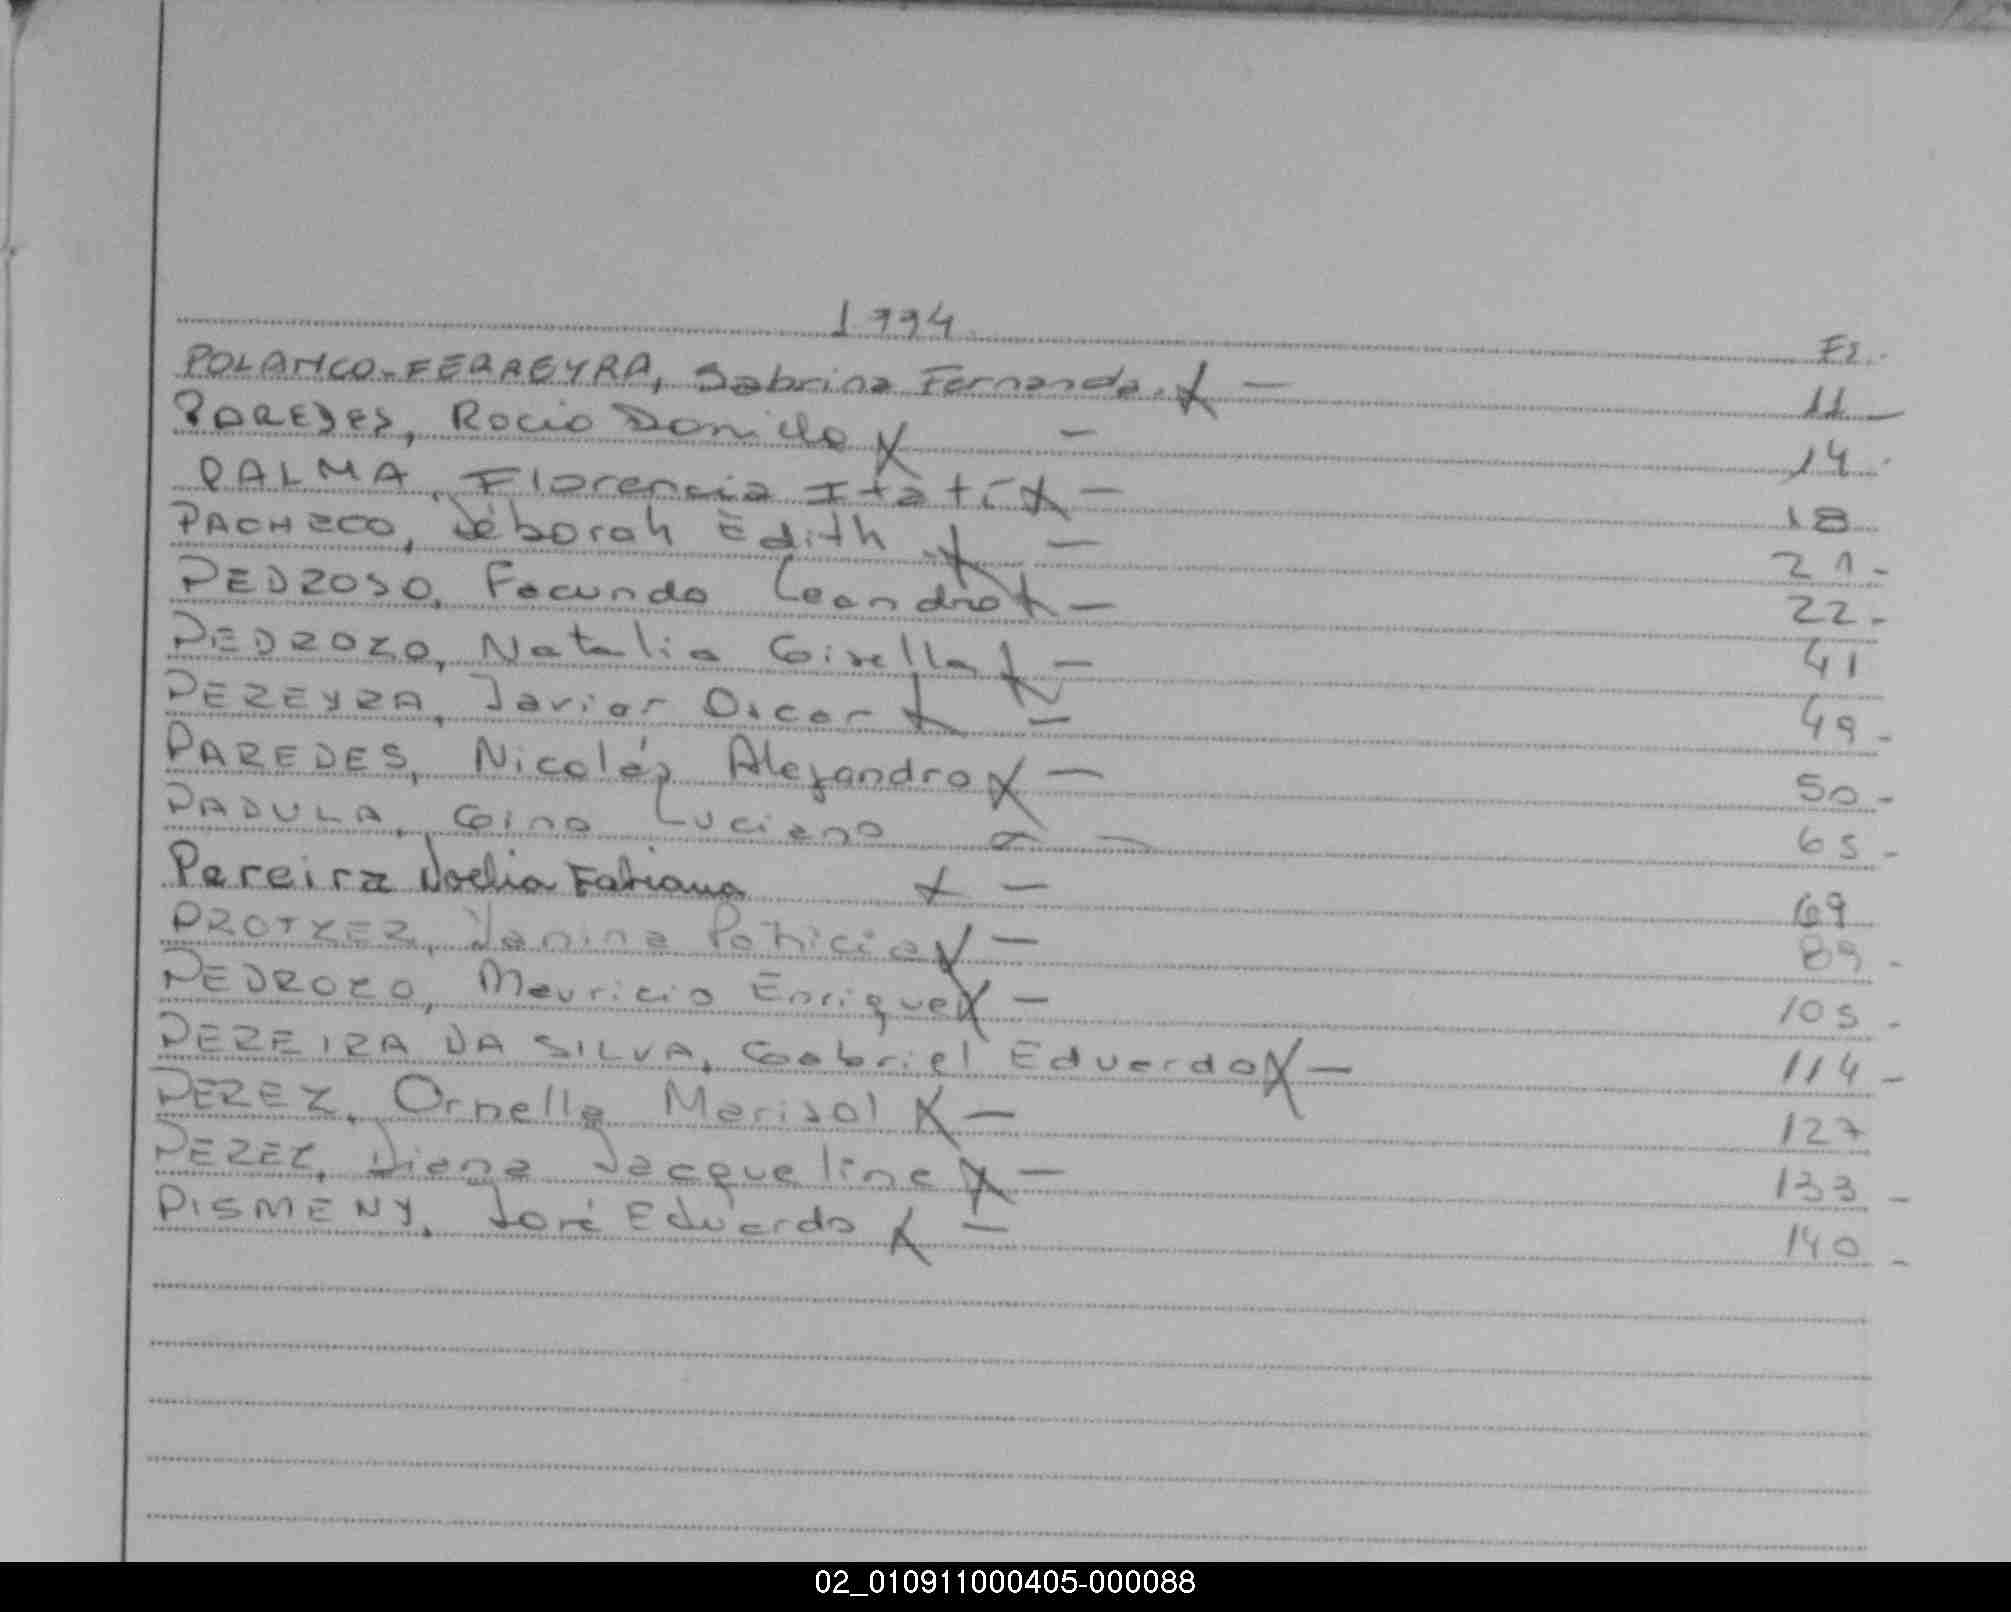 1994
Fs.
POLANCO-FERREYRA, Sabrina Fernanda. X — 11 —
PAREDES, Rocio X — 14
PALMA, Florencia Itatí X — 18
PACHECO, Déborah Edith X — 21 -
PEDROSO, Facundo Leandro X — 22 -
PEDROZO, Natalia Gisella X — 41
PEREYRA, Javier Oscar X — 49 -
PAREDES, Nicolás Alejandro X — 50 -
PADULA, Gino Luciano — 65 -
Pereira Noelia Fabiana X — 69
Yanina Patricia X — 89 -
PEDROZO, Mauricio Enrique X — 105 -
PEREIRA DA SILVA, Gabriel Eduardo X — 114 -
PEREZ, Ornella Marisol X — 127
PEREZ, Diana Jacqueline X — 133 -
PISMENY, José Eduardo X — 140 -
02_010911000405-000088